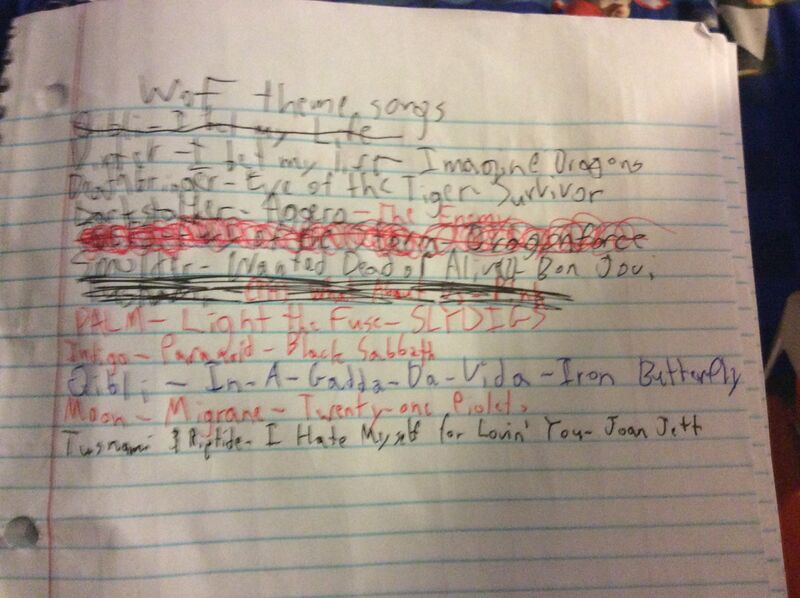 WoF theme songs
Qibli - I bet my Life
Winter - I bet my life - Imagine Dragons
Deathbringer - Eye of the Tiger Survivor
Darkstalker - Aggero - The Enemy
Dragonforce
Smolder - Wanted Dead or Alive - Bon Jovi
PALM - Light the Fuse - SLYDIGS
Intigo - Paranoid - Black Sabbath
Qibli - In-A-Gadda-Da-Vida - Iron Butterfly
Moon - Migrane - Twenty-one Piolets
Tusnami & Riptide - I Hate Myself for Lovin' You - Joan Jett